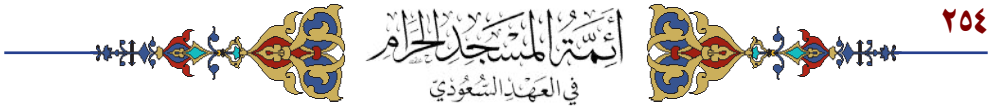 ٢٥٤
أئمة المسجد الحرام
في العهد السعودي